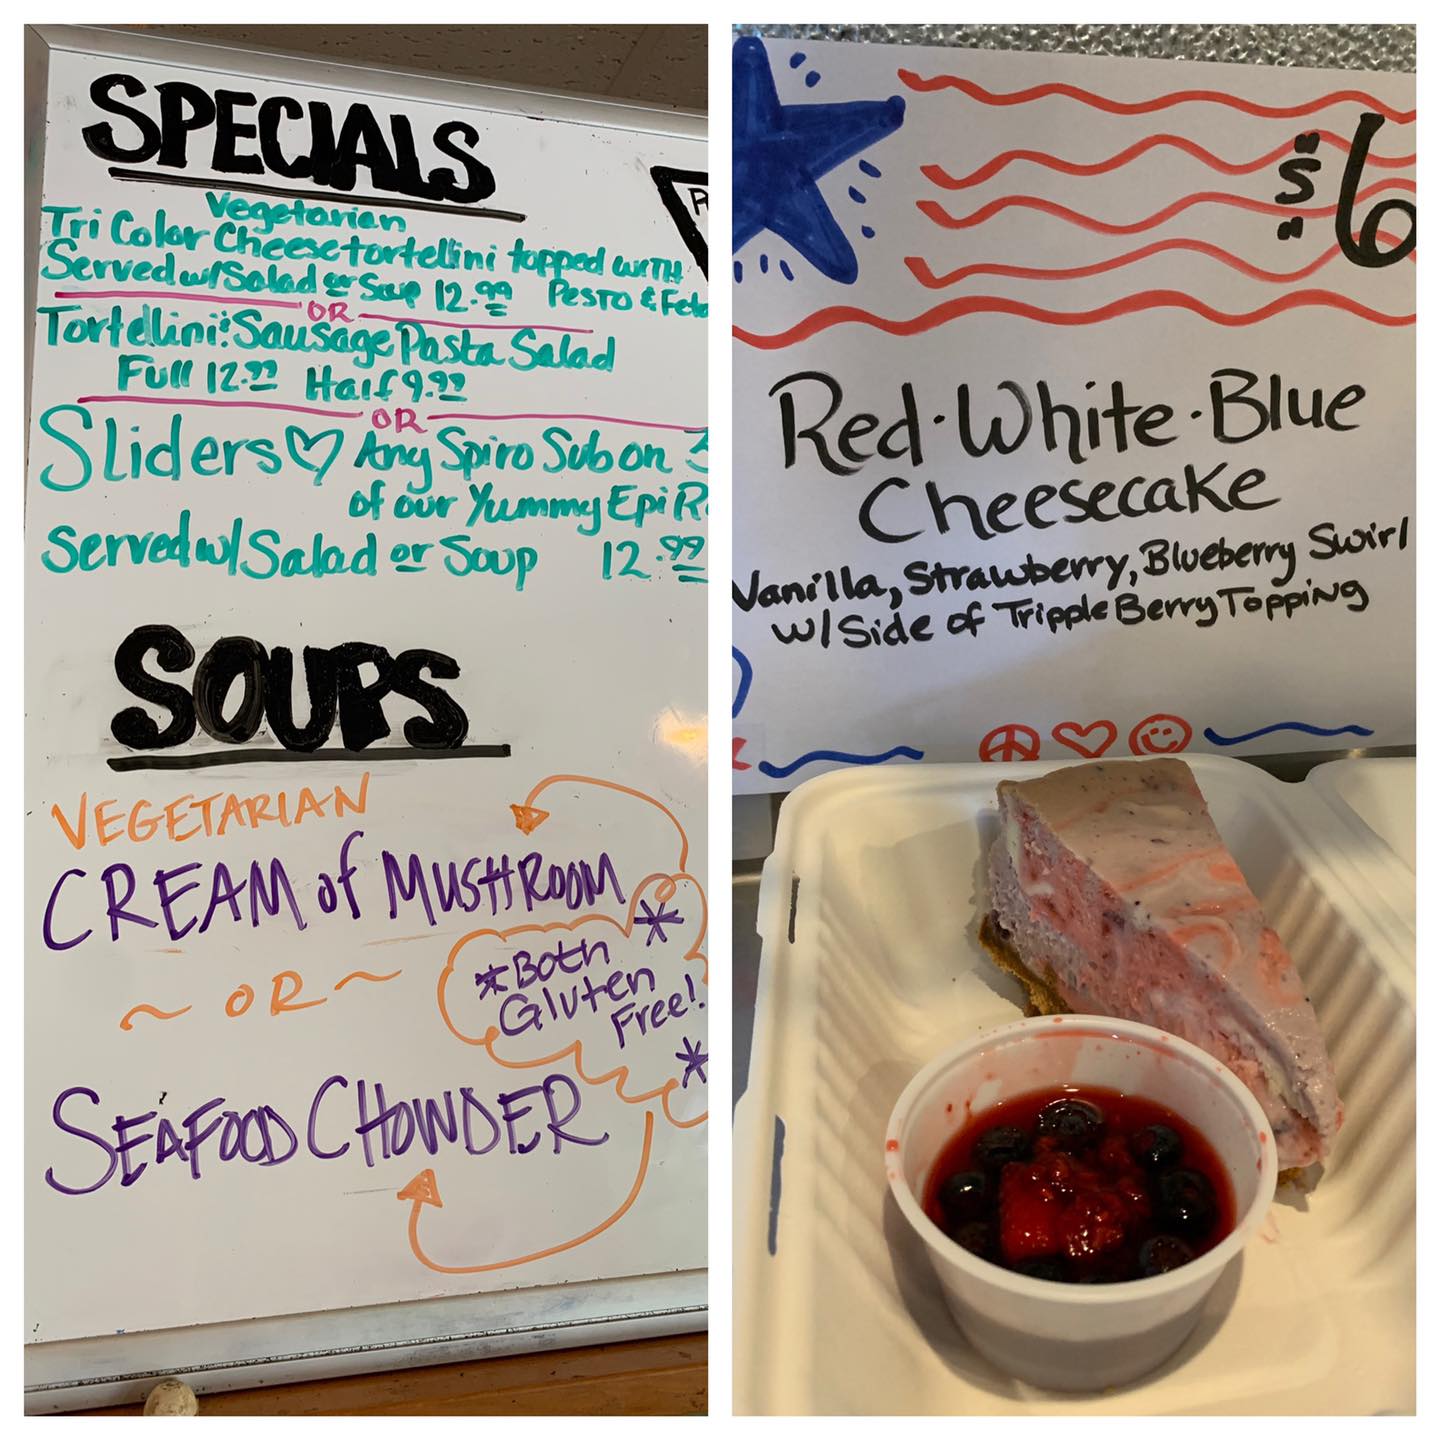 SPECIALS
Vegetarian
Tri Color Cheese tortellini topped with
Served w/ Salad or Soup 12.99 Pesto &
OR
Tortellini & Sausage Pasta Salad
Full 12.99 Half 9.99
OR
Sliders Any Spiro Sub on
of our Yummy Epi
Served w/ Salad or Soup 12.99
SOUPS
VEGETARIAN
CREAM of MUSHROOM
~ OR ~
*Both
Gluten
Free!
*
*
SEAFOOD CHOWDER
$6
Red·White·Blue
Cheesecake
Vanilla, Strawberry, Blueberry Swirl
w/ Side of Tripple Berry Topping